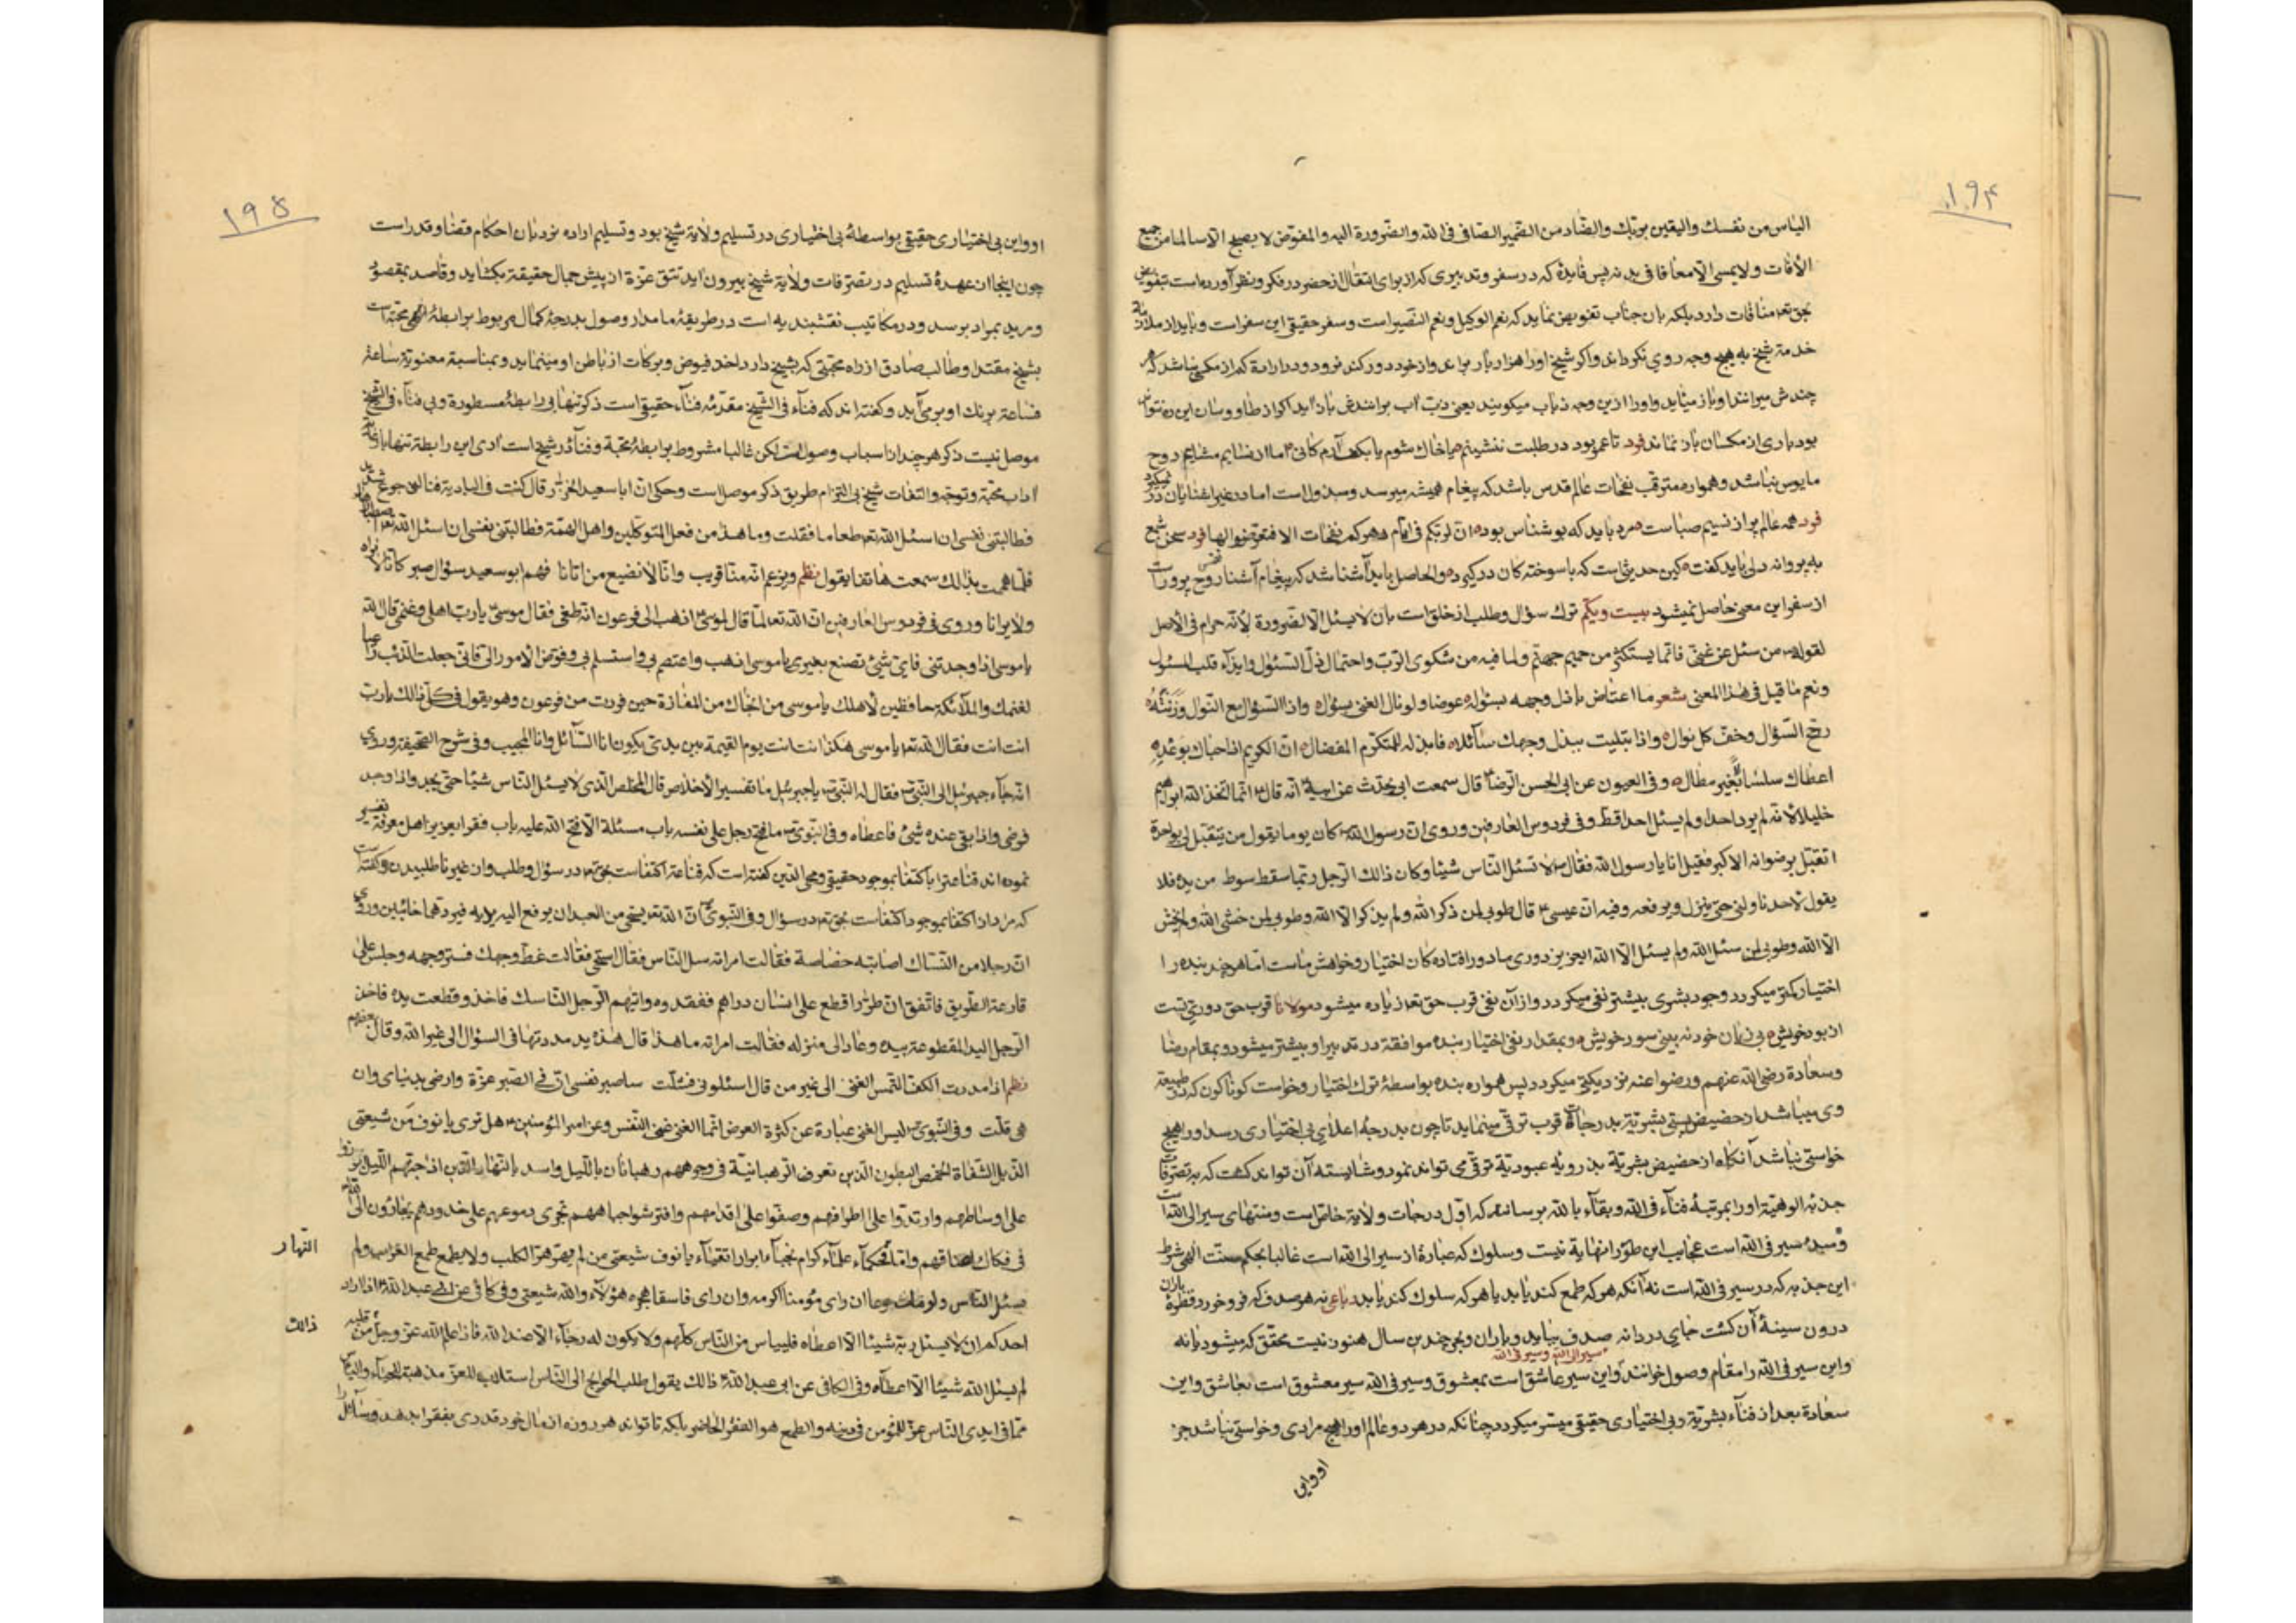 ۱۹۴
الیاس من نفسك والیقین بربّك والضاد من الضمیر الصافی فی الله والضرورة الیه والمفوّض لا یصبح الّا سالما من جمیع
الآفات ولا یمسی الّا معافا فی بدنه پس فایدهٔ که در سفر وتدبیری که از برای انتقال از حضر در فکر ونظر آورده است بتفویض
بحق تعه منافات دارد بلکه بان جناب تفویض نماید که نعم الوکیل ونعم النصیر است وسفر حقیقی این سفر است وباید از ملازمة
خدمة شیخ به هیچ وجه روی نکرداند واکر شیخ اورا هزار بار براند واز خود دور کند نرود ودر ارادة کم از مکسی نباشد که هر
چندش میرانند او باز میٔاید واورا ازین وجه ذباب میکویند یعنی ذبّ آب برانندش باز آید اکر از طاووسان این ره نتوانی
بود باری از مکسان باز نماند فرد تا عمر بود در طلبت ننشینم یا خاك شوم یا بکف آرم کانی اما از نسایم مشایم روح
مایوس نباشد وهمواره مترقب نفحات عالم قدس باشد که پیغام همیشه میرسد ومبذول است اما در غیر آشنایان در نمیکیرد
فرد همه عالم پر از نسیم صباست مرد باید که بو شناس بود انّ لربّکم فی ایّام دهرکم نفحات الا فتعرّضوا لها فرد سخن شمع
به پروانه دلی باید کفت کین حدیثی است که با سوخته کان در کیرد والحاصل باید آشنا شد که پیغام آشنا روح پرور است
از سفر این معنی حاصل نمیشود بیست ویکم ترك سؤال وطلب از خلق است بان لا یسئل الّا لضرورة لأنّه حرام فی الأصل
لقوله ص من سئل عن غنیً فانّما یستکثر من جمیم جهنّم ولما فیه من شکوی الربّ واحتمال ذلّ السئوال وایذآء قلب المسئول
ونعم ما قیل فی هذا المعنی شعر ما اعتاض باذل وجهه بسئوله عوضا ولو نال الغنی بسئوال واذا السئوال مع النوال وزنته
رجح السّؤال وخفّ کل نوال واذا بتلیت ببذل وجهك سآئلا فابذله للمتکرّم المفضال انّ الکریم اذا حباك بوعده
اعطاك سلسا بغیر مطال وفی العیون عن ابی الحسن الرضا ع قال سمعت ابی یحدّث عن ابیه ع انّه قال ع انّما اتّخذ الله ابراهیم
خلیلا لأنّه لم یرد احدا ولم یسئل احدا قط وفی فردوس العارفین وروی انّ رسول الله ص کان یوما یقول من یتقبّل لی بواحدة
اتقبّل برضوانه الاکبر فقیل انا یا رسول الله فقال ص لا تسئل النّاس شیئا وکان ذالك الرجل ربّما سقط سوط من یده فلا
یقول لأحد ناولنی حتّی ینزل ویرفعه وفیه انّ عیسی ع قال طوبی لمن ذکر الله ولم یذکر الّا الله وطوبی لمن خشی الله ولم یخش
الّا الله وطوبی لمن سئل الله ولم یسئل الّا الله ایعزیز دوری ما دور افتاده کان اختیار وخواهش ماست امّا هر چند بنده را
اختیار کمتر میکردد وجود بشری بیشتر نفی میکردد واز آن نفی قرب حق تعه زیاده میشود مولانا قرب حق دوری تست
از بود خویش بی زیان خود نه بینی سود خویش وبمقدار نفی اختیار بنده موافقة در تدبیر او بیشتر میشود وبمقام رضا
وسعادة رضی الله عنهم ورضوا عنه نزدیکتر میکردد پس همواره بنده بواسطهٔ ترك اختیار وخواست کوناکون که در طبیعة
وی میباشد از حضیض پستی بشریّة بدرجات قرب ترقّی مینماید تا چون بدرجهٔ اعلای بی اختیاری رسد اورا هیچ
خواستی نباشد آنکاه از حضیض بشریّة بذروهٔ عبودیّة ترقّی می تواند نمود وشایسته آن تواند کشت که به تصرّفات
جذبه الوهیّة اورا بمرتبهٔ فنآء فی الله وبقآء بالله برسانند که اوّل درجات ولایة خاصّ است ومنتهای سیر الی الله است
ومبدء سیر فی الله است عجایب این طور را نهایة نیست وسلوك که عبارة از سیر الی الله است غالبا بحکم سنّت الهی شرط
این جذبه که در سیر فی الله است نه آنکه هر که طمع کند یابد یا هر که سلوك کند یابد رباعی نه هر صدف که فرو خورد قطرهٔ باران
درون سینهٔ آن کشت جای دردانه صدف بباید وباران وبحر چندین سال هنوز نیست محقّق که میشود یا نه
سیر الی الله وسیر فی الله
واین سیر فی الله را مقام وصول خوانند واین سیر عاشق است بمعشوق وسیر فی الله سیر معشوق است بعاشق واین
سعادة بعد از فنآء بشریّة وبی اختیاری حقیقی میسّر میکردد چنانکه در هر دو عالم اورا هیچ مرادی وخواستی نباشد جز
او واین
۱۹۵
او واین بی اختیاری حقیقی بواسطهٔ بی اختیاری در تسلیم ولایة شیخ بود وتسلیم اراده نردبان احکام قضا وقدر است
چون اینجا از عهدهٔ تسلیم در تصرّفات ولایة شیخ بیرون آید تتق عزّة از پیش جمال حقیقة بکشاید وقاصد بمقصود
ومرید بمراد برسد ودر مکاتیب نقشبندیه است در طریقهٔ ما مدار وصول بدرجهٔ کمال مربوط برابطهٔ محبّة است
بشیخ مقتدا وطالب صادق از راه محبّتی که بشیخ دارد اخذ فیوض وبرکات از باطن او مینماید وبمناسبة معنویّة ساعة
فساعة برنك او برمی آید وکفته اند که فنآء فی الشیخ مقدّمهٔ فنآء حقیقی است ذکر تنها بی رابطهٔ مسطورة وبی فنآء فی الشیخ
موصل نیست ذکر هر چند از اسباب وصول است لکن غالبا مشروط برابطهٔ محبّة وفنآء در شیخ است آری این رابطه تنها با رعایة
آداب محبّة وتوجّه والتفات شیخ بی التزام طریق ذکر موصل است وحکی انّ ابا سعید الخرّاز قال کنت فی البادیة فنالنی جوع شدید
فطالبتنی نفسی ان اسئل الله تعه طعاما فقلت وما هذا من فعل المتوکّلین واهل الهمّة فطالبتنی نفسی ان اسئل الله تعه صبرا
فلمّا هممت بذالك سمعت هاتفا یقول نظم ویزعم انّه منّا قریب وانّا لا نضیع من اتانا فهم ابو سعید سؤال صبر کانّا لا نراه
ولا یرانا وروی فی فردوس العارفین انّ الله تعه لمّا قال لموسی ع اذهب الی فرعون انّه طغی فقال موسی ع یا ربّ اهلی وغنمی قال الله
یا موسی اذا وجدتنی فایّ شیئ تصنع بغیری یا موسی اذهب واعتصم بی واستسلم بی وفوّض الامور الیّ فانّی جعلت الذئب راعیا
لغنمك والملآئکة حافظین لأهلك یا موسی من انجاك من المفازة حین فررت من فرعون وهو یقول فی کلّ ذالك یا ربّ
انت انت فقال الله تعه یا موسی هکذا انت انت یوم القیمة بین یدیّ یکون انا السّآئل وانا المجیب وفی شرح الصحیفة وروی
انّه جآء جبرئیل الی النّبیّ ص فقال له النّبیّ ص یا جبرئیل ما تفسیر الأخلاص قال المخلص الّذی لا یسئل النّاس شیئا حتّی یجد واذا وجد
فرضی واذا بقی عنده شیئ فاعطاه وفی النّبوی ص ما فتح رجل علی نفسه باب مسئلة الّا فتح الله علیه باب فقر ایعزیز اهل معرفة تفسیر
نموده اند قناعترا باکتفا بموجود حقیقی ومحی الدّین کفته است که قناعة اکتفاست بحق تعه در سؤال وطلب وان غیر ناطلبیدن وکفته است
که مراد از اکتفا بموجود اکتفاست بحق تعه در سؤال وفی النّبوی ص انّ الله تعه یستحی من العبد ان یرفع الیه یدیه فیردّهما خائبین وروی
انّ رجلا من النسّاك اصابته خصاصة فقالت امراته سل النّاس فقال استحی فقالت غطّ وجهك فستر وجهه وجلس علی
قارعة الطّریق فاتّفق انّ طرّارا قطع علی انسان دراهم ففقدوه واتّهم الرّجل النّاسك فاخذ وقطعت یده فاخذ
الرّجل الید المقطوعة بیده وعاد الی منزله فقالت امراته ما هذا قال هذه ید مددتها فی السؤال الی غیر الله وقال بعضهم
نظم اذا مدرت الکفّ التمس الغنی الی غیر من قال اسئلونی فشلّت ساصبر نفسی انّ فی الصّبر عزّة وارضی بدنیای وان
هی قلّت وفی النّبوی ص لیس الغنی عبارة عن کثرة العرض انّما الغنی غنی النّفس وعن امیر المؤمنین ع هل تری یا نوف من شیعتی
الذّبل الشّفاة الخمص البطون الّذین تعرف الرّهبانیّة فی وجوههم رهبانان باللّیل واسد بالنّهار الّذین اذا جنّهم اللّیل اتّزروا
علی اوساطهم وارتدّوا علی اطرافهم وصفّوا علی اقدامهم وافترشوا جباههم تجری دموعهم علی خدودهم یجأرون الی الله
فی فکاك اعناقهم وامّا فحکمآء علمآء کرام نجبآء ابرار اتقیآء یا نوف شیعتی من لم یهرّ هرّة الکلب ولا یطمع طمع الغراب ولم
النهار
یسئل النّاس ولو مات جوعا ان رای مؤمنا اکرمه وان رای فاسقا هجره هؤلآء والله شیعتی وفی کافی عن ابی عبد الله ع اذا اراد
احدکم ان لا یسئل ربّه شیئا الّا اعطاه فلییاس من النّاس کلّهم ولا یکون له رجآء الّا عند الله فاذا علم الله عزّ وجلّ من قلبه
ذالك
لم یسئل الله شیئا الّا اعطآه وفی الکافی عن ابی عبد الله ع ذالك یقول طلب الحوایج الی النّاس استلاب للعزّ مذهبة للحیآء والیاس
ممّا فی ایدی النّاس عزّ للمؤمن فی دینه والطّمع هو الفقر الحاضر بلکه تا تواند هر روزه از مال خود قدری بفقرا بدهد وسآئل را